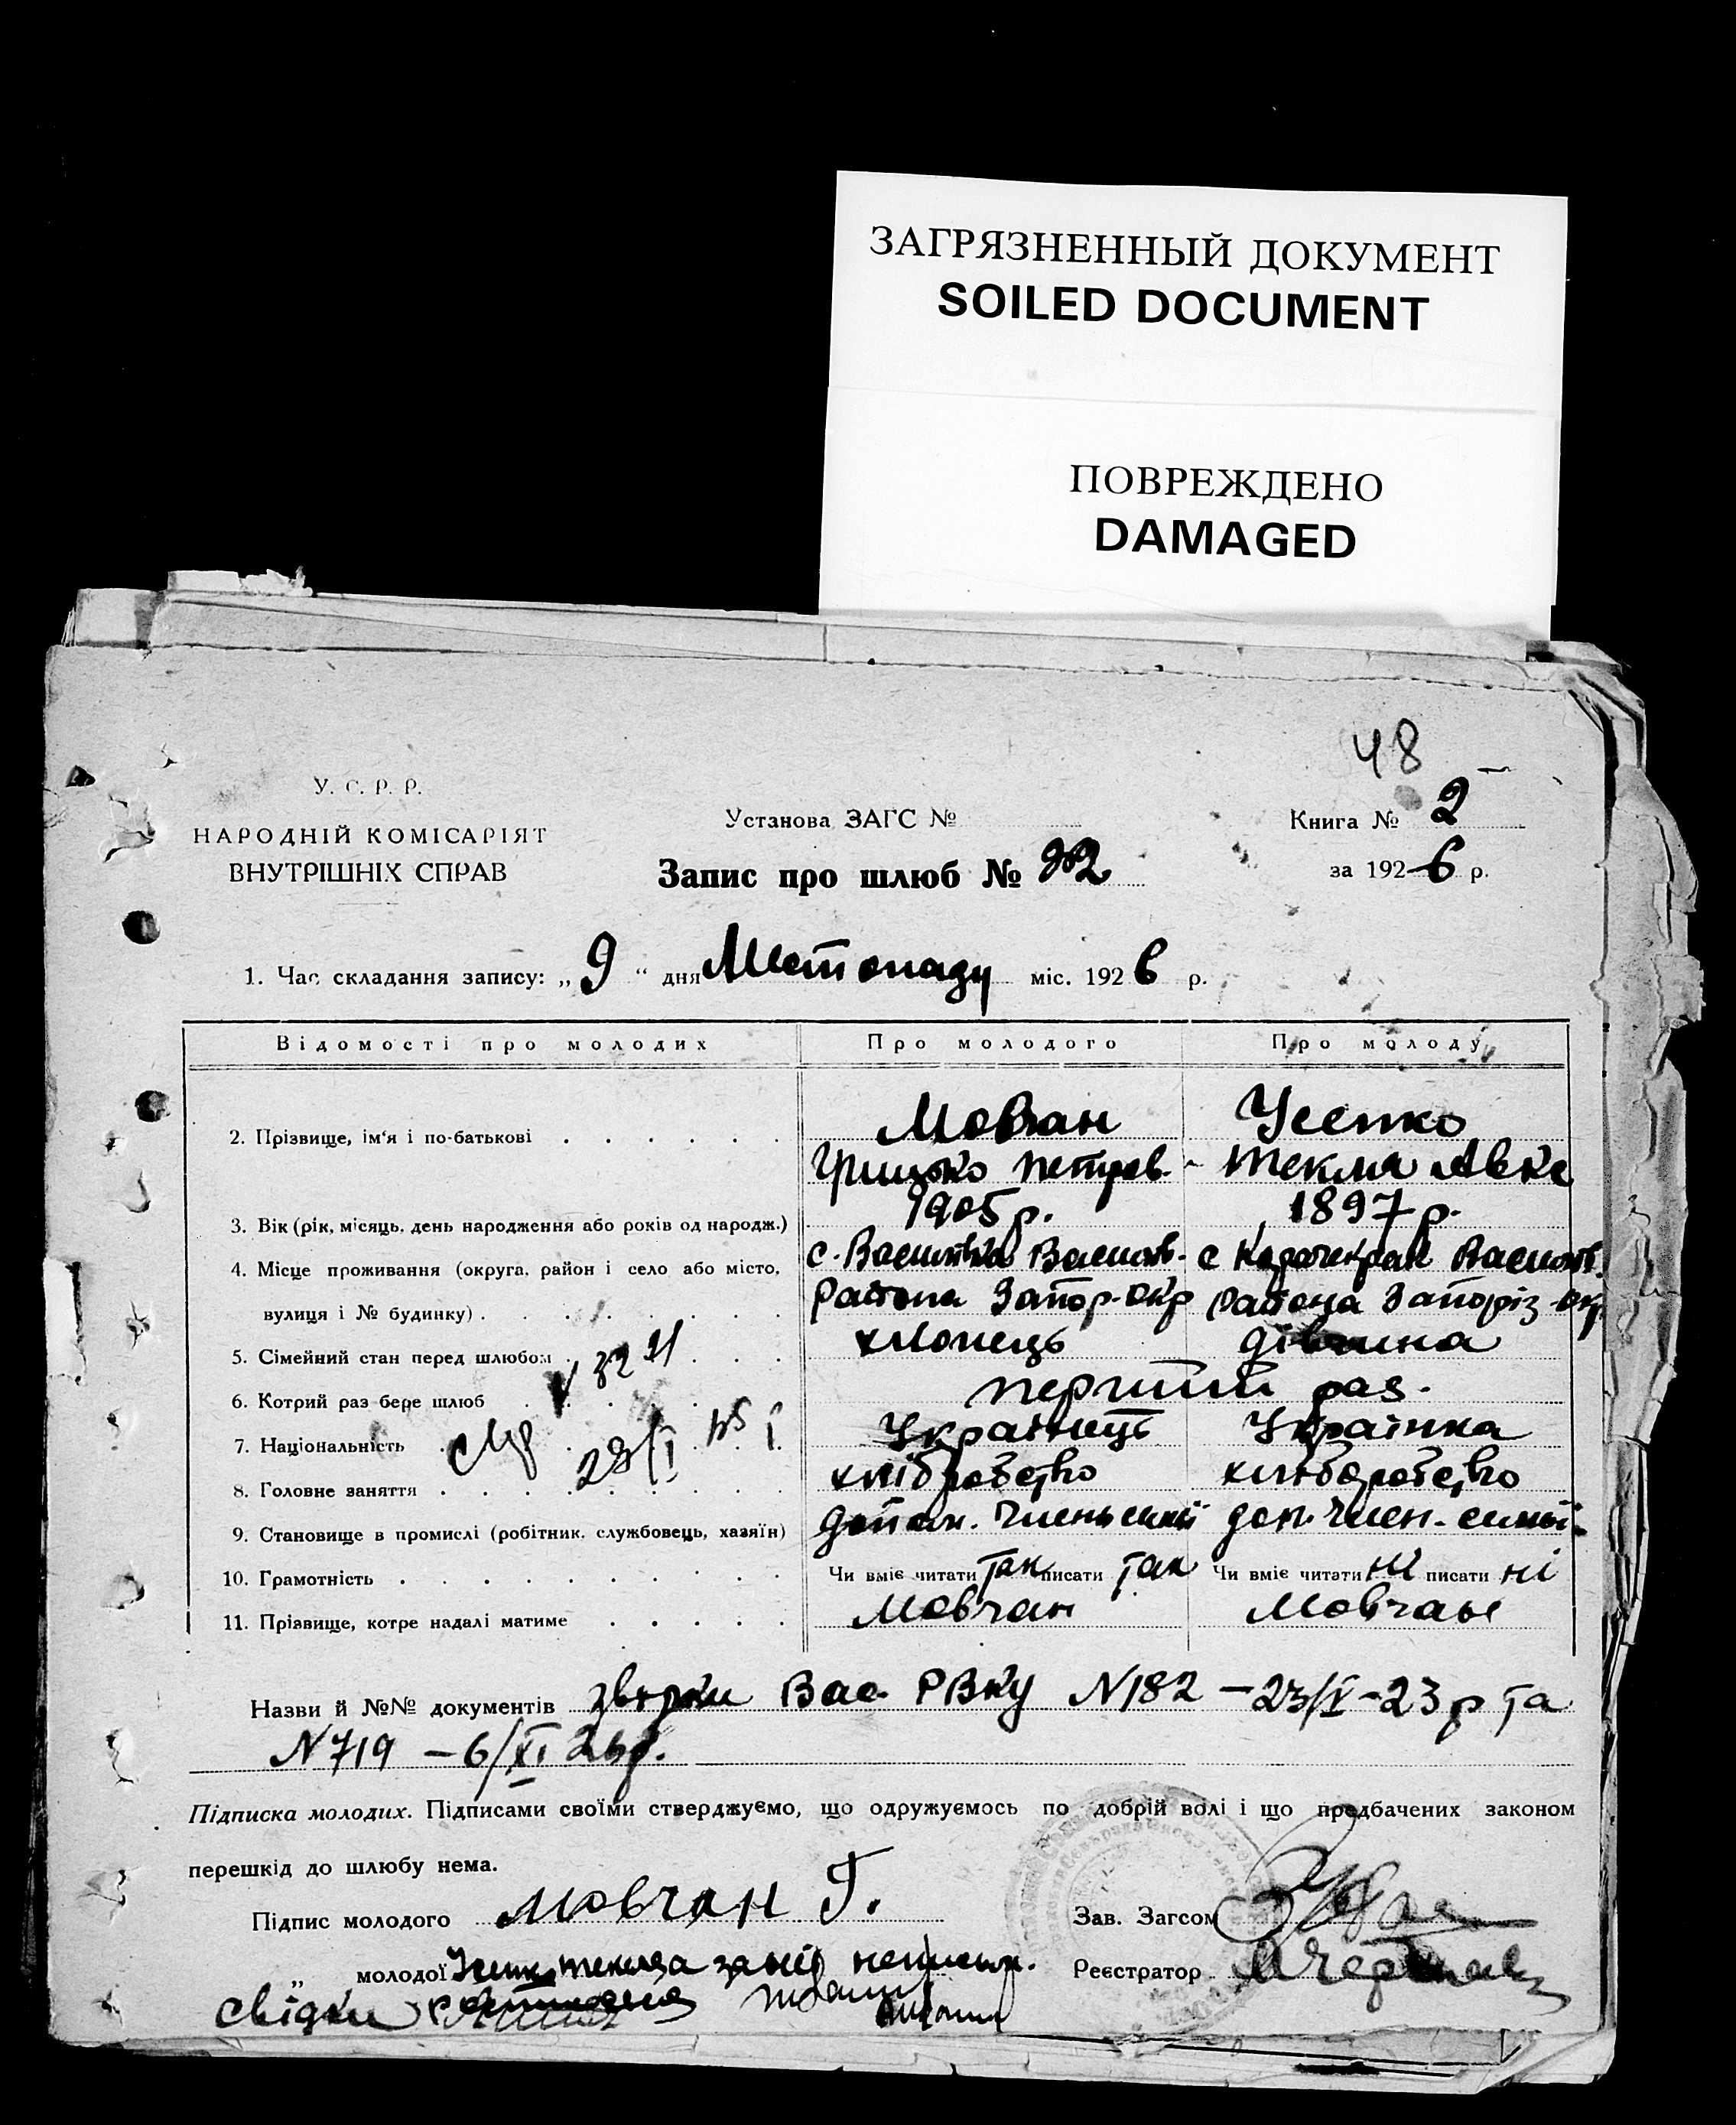 ЗАГРЯЗНЕННЫЙ ДОКУМЕНТ
SOILED DOCUMENT
ПОВРЕЖДЕНО
DAMAGED
48
У. С. Р. Р.
НАРОДНІЙ КОМІСАРІЯТ
ВНУТРІШНІХ СПРАВ
Установа ЗАГС №
Запис про шлюб №
Книга № 2
за 1926 р.
1. Час складання запису: „ 9 “ дня Листопаду міс. 1926 р.
Відомості про молодих Про молодого Про молоду
2. Прізвище, ім'я і по-батькові Мовчан Усенко
Грицько Петров- Текля Авкс
3. Вік (рік, місяць, день народження або років од народж.) 1905 р. 1897 р.
4. Місце проживання (округа, район і село або місто, с. Василівка Василів- с Василів.
вулиця і № будинку) Района Запор-Окр Района Запоріз-Ок
5. Сімейний стан перед шлюбом хлопець дівчина
6. Котрий раз бере шлюб перший раз.
7. Національність Українець Українка
8. Головне заняття хліборобство хліборобство
9. Становище в промислі (робітник, службовець, хазяїн) член семї доп. член. семьї
10. Грамотність Чи вміє читати так писати так Чи вміє читати ні писати ні
11. Прізвище, котре надалі матиме Мовчан Мовчан
Назви й №№ документів Вас РВКу N182 – 23/V – 23 р та
N719 – 6/XI 26 р.
Підписка молодих. Підписами своїми стверджуємо, що одружуємось по добрій волі і що предбачених законом
перешкід до шлюбу нема.
Підпис молодого Мовчан Г. Зав. Загсом
„ молодої Текля за неї Реєстратор
свідки